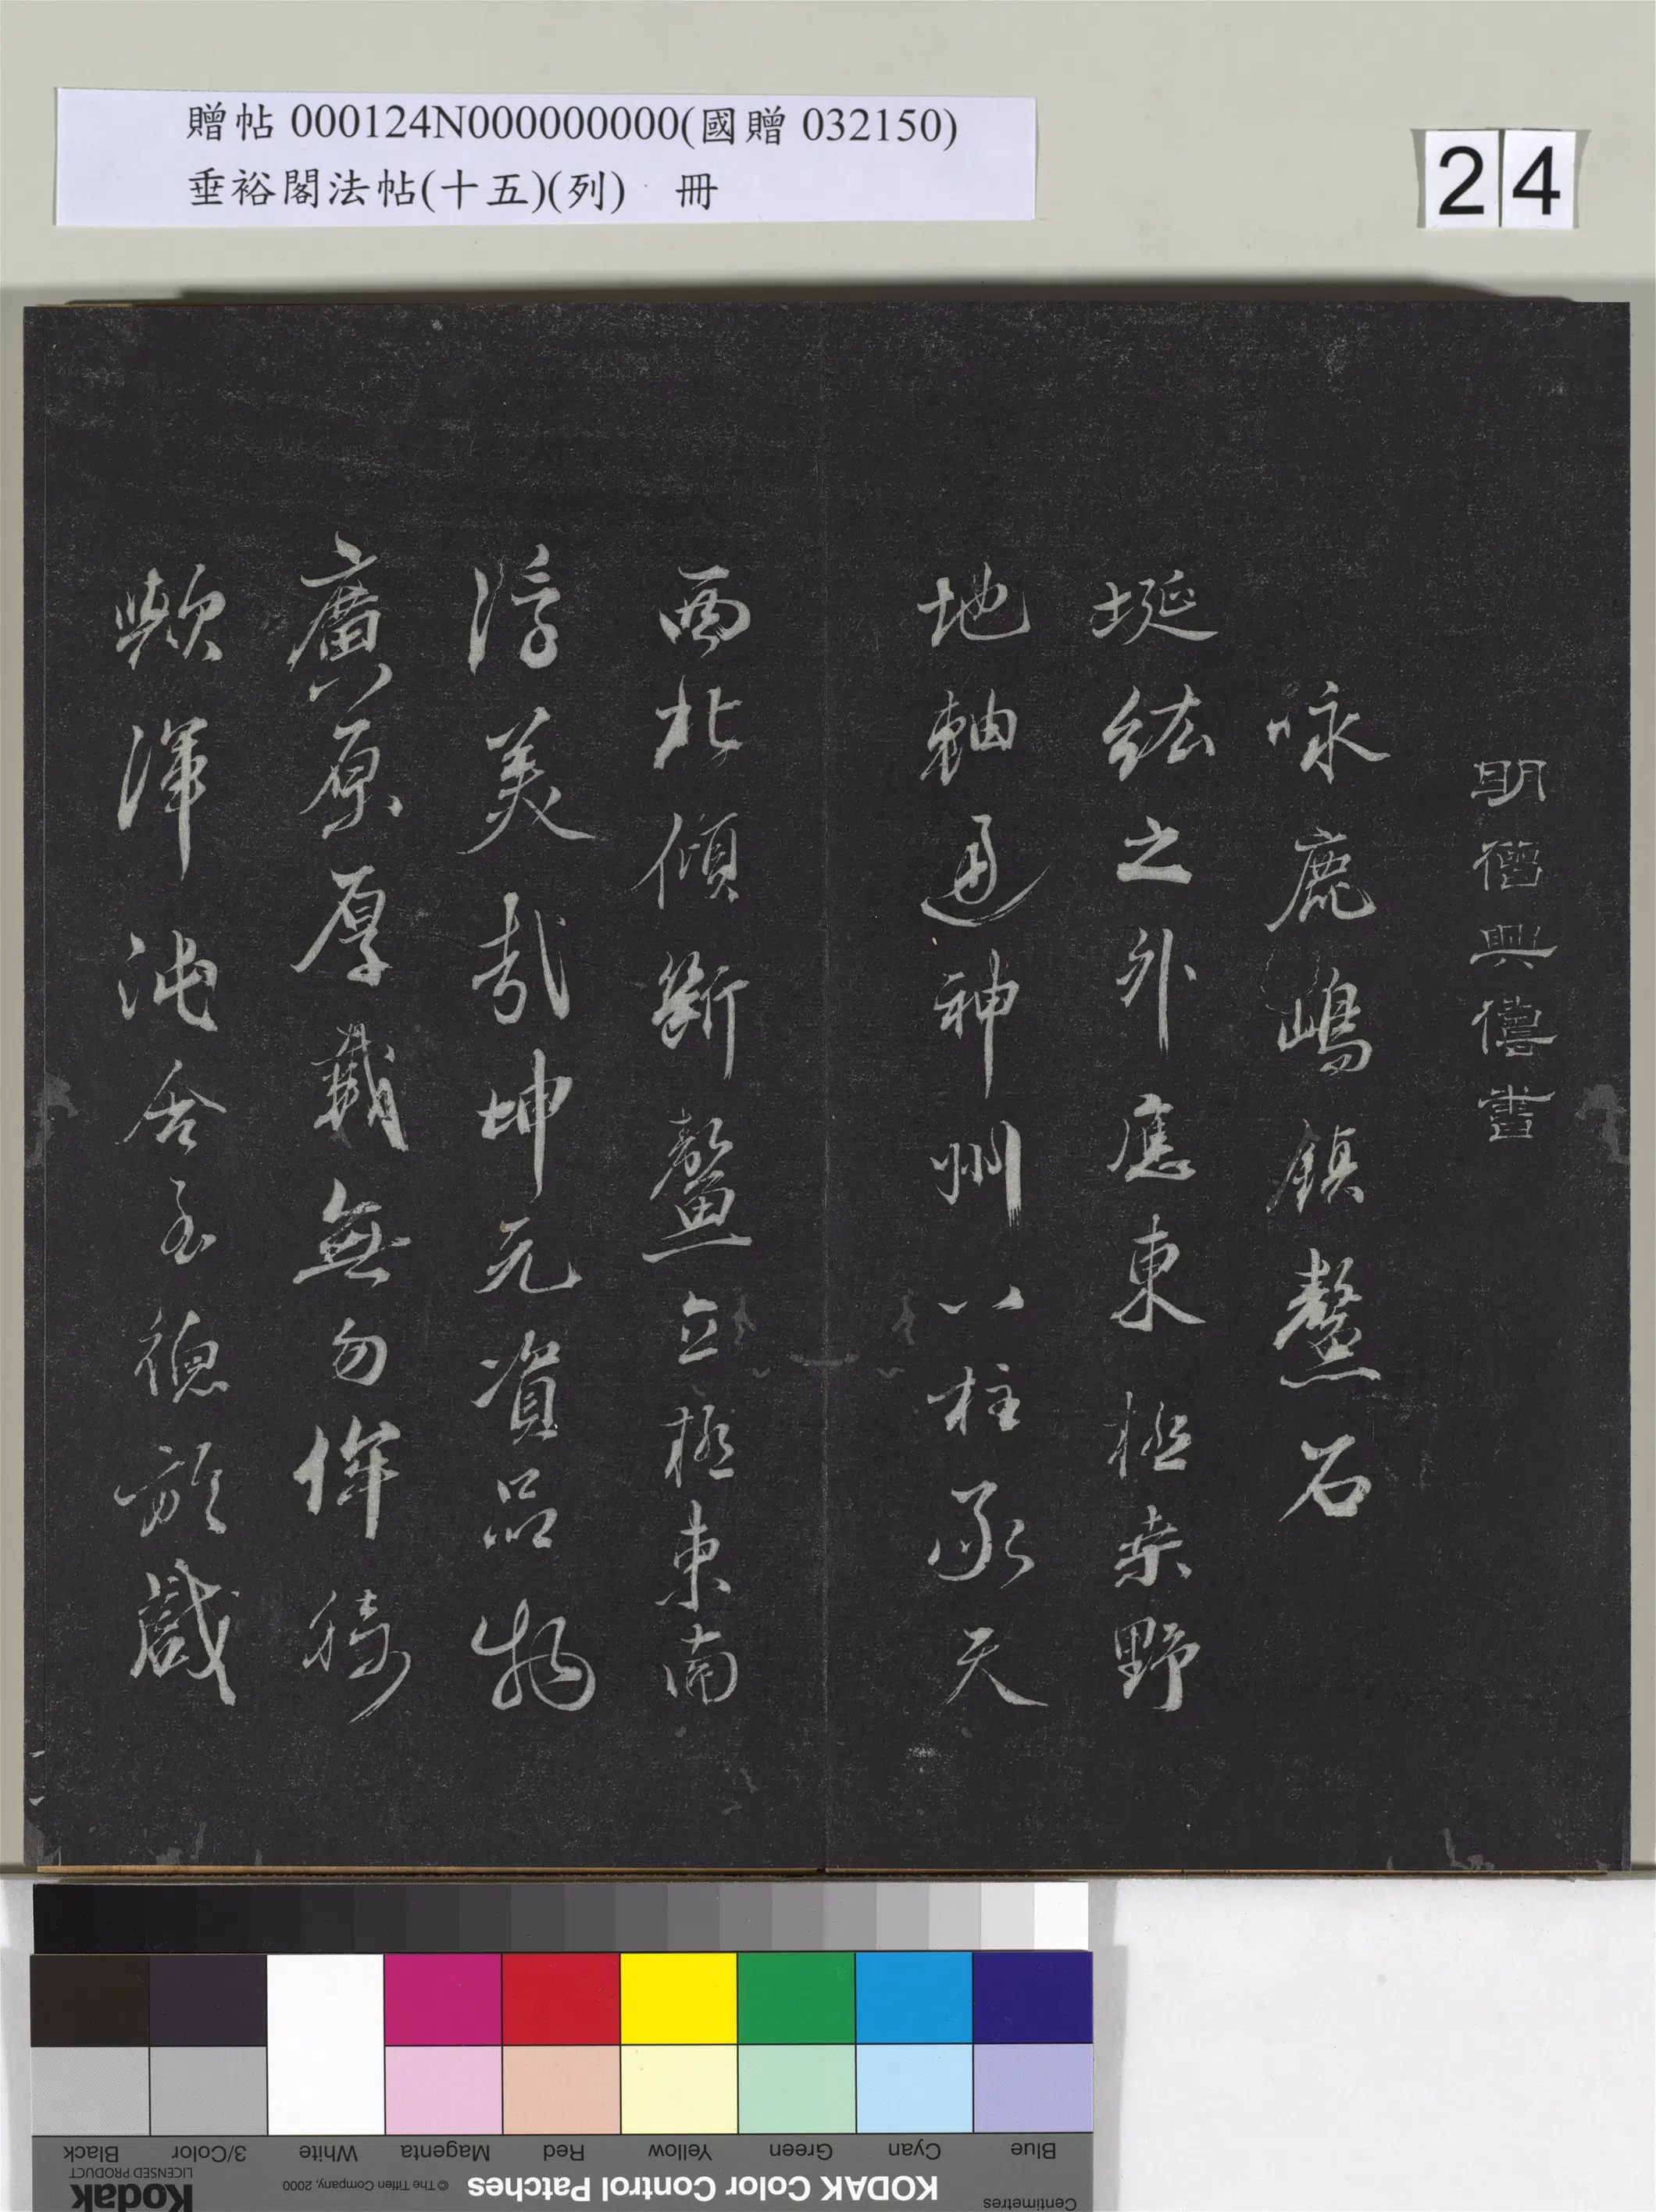 贈帖 000124N000000000(國贈 032150)
垂裕閣法帖(十五)(列) 冊
24
明僧興儔書
咏鹿嶋鎮鼇石
埏紘之外應東極桒野
地軸通神州八柱承天
西北傾斷鼇立極東南
浮美哉坤元資品物
廣原厚載無勿侔猗
歟渾沌含至德於戲
Blue
Cyan
Green
Yellow
Red
Magenta
White
3/Color
Black
Centimetres
KODAK Color Control Patches
© The Tiffen Company, 2000
Kodak
LICENSED PRODUCT